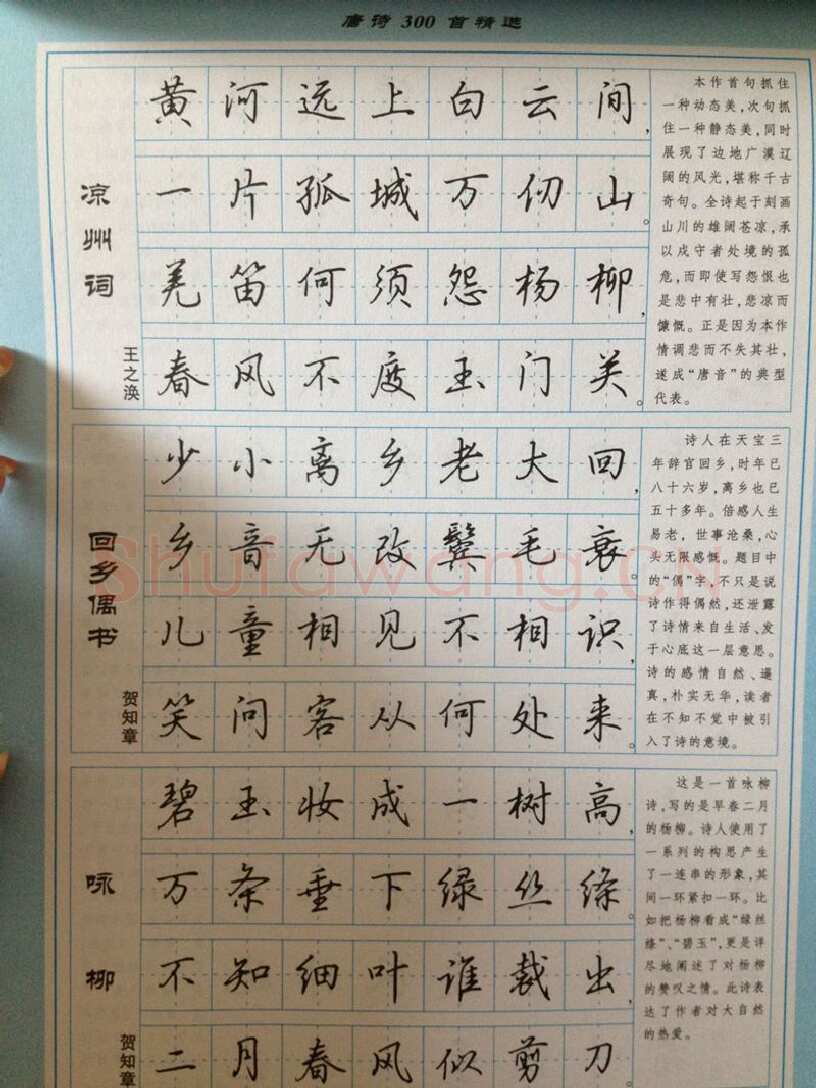 唐诗300首精选
凉州词
王之涣
黄河远上白云间，
一片孤城万仞山。
羌笛何须怨杨柳，
春风不度玉门关。
本作首句抓住
一种动态美，次句抓
住一种静态美，同时
展现了边地广漠辽
阔的风光，堪称千古
奇句。全诗起于刻画
山川的雄阔苍凉，承
以戍守者处境的孤
危，而即使写怨恨也
是悲中有壮，悲凉而
慷慨。正是因为本作
情调悲而不失其壮，
遂成“唐音”的典型
代表。
回乡偶书
贺知章
少小离乡老大回，
乡音无改鬓毛衰。
儿童相见不相识，
笑问客从何处来。
诗人在天宝三
年辞官回乡，时年已
八十六岁，离乡也已
五十多年。倍感人生
易老，世事沧桑，心
头无限感慨。题目中
的“偶”字，不只是说
诗作得偶然，还泄露
了诗情来自生活、发
于心底这一层意思。
诗的感情自然、逼
真，朴实无华，读者
在不知不觉中被引
入了诗的意境。
咏柳
贺知章
碧玉妆成一树高，
万条垂下绿丝绦。
不知细叶谁裁出，
二月春风似剪刀
这是一首咏柳
诗。写的是早春二月
的杨柳。诗人使用了
一系列的构思产生
了一连串的形象，其
间一环紧扣一环。比
如把杨柳看成“绿丝
绦”、“碧玉”，更是详
尽地阐述了对杨柳
的赞叹之情。此诗表
达了作者对大自然
的热爱。
Shufawang.cn